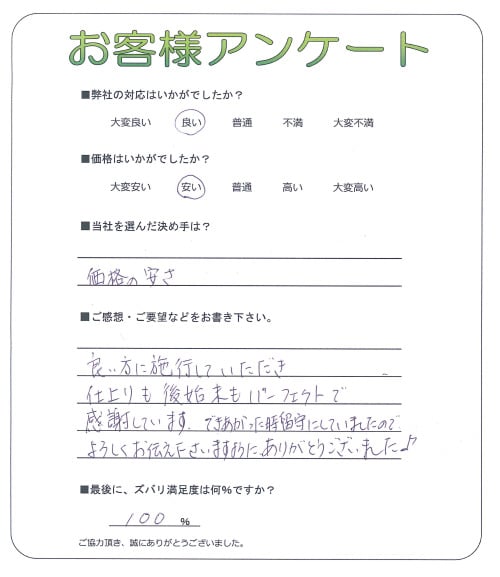 お客様アンケート
■弊社の対応はいかがでしたか？
大変良い 良い 普通 不満 大変不満
■価格はいかがでしたか？
大変安い 安い 普通 高い 大変高い
■当社を選んだ決め手は？
価格の安さ
■ご感想・ご要望などをお書き下さい。
良い方に施行していただき
仕上りも後始末もパーフェクトで
感謝しています。できあがった時留守にしていましたので
よろしくお伝え下さいますように、ありがとうございました♪
■最後に、ズバリ満足度は何%ですか？
100 %
ご協力頂き、誠にありがとうございました。